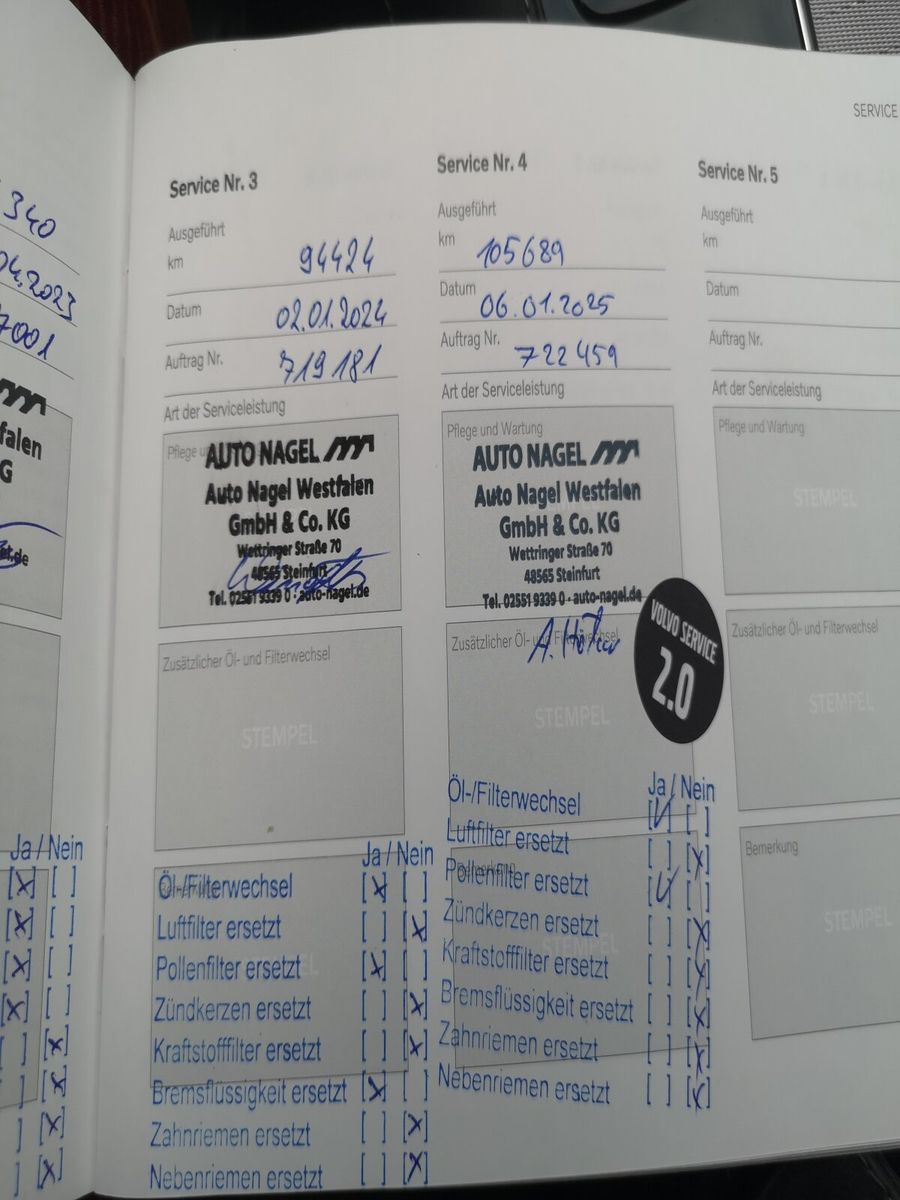 SERVICE
340
04.2023
7001
falen
G
.de
Ja / Nein
[x] [ ]
[x] [ ]
[x] [ ]
[x] [ ]
[ ] [x]
[ ] [x]
[ ] [x]
[ ] [x]
Service Nr. 3
Ausgeführt
km 94424
Datum 02.01.2024
Auftrag Nr. 719181
Art der Serviceleistung
Pflege u
AUTO NAGEL
Auto Nagel Westfalen
GmbH & Co. KG
Wettringer Straße 70
48565 Steinfurt
Tel. 02551 9339 0 · auto-nagel.de
Zusätzlicher Öl- und Filterwechsel
STEMPEL
Ja / Nein
Öl-/Filterwechsel [x] [ ]
Luftfilter ersetzt [ ] [x]
Pollenfilter ersetzt [x] [ ]
Zündkerzen ersetzt [ ] [x]
Kraftstofffilter ersetzt [ ] [x]
Bremsflüssigkeit ersetzt [x] [ ]
Zahnriemen ersetzt [ ] [x]
Nebenriemen ersetzt [ ] [x]
Service Nr. 4
Ausgeführt
km 105689
Datum 06.01.2025
Auftrag Nr. 722459
Art der Serviceleistung
Pflege und Wartung
AUTO NAGEL
Auto Nagel Westfalen
GmbH & Co. KG
Wettringer Straße 70
48565 Steinfurt
Tel. 02551 9339 0 · auto-nagel.de
Zusätzlicher Öl- und Filterwechsel
A.
VOLVO SERVICE
2.0
STEMPEL
Ja / Nein
Öl-/Filterwechsel [✓] [ ]
Luftfilter ersetzt [ ] [x]
Pollenfilter ersetzt [✓] [ ]
Zündkerzen ersetzt [ ] [x]
Kraftstofffilter ersetzt [ ] [x]
Bremsflüssigkeit ersetzt [ ] [x]
Zahnriemen ersetzt [ ] [x]
Nebenriemen ersetzt [ ] [x]
Service Nr. 5
Ausgeführt
km
Datum
Auftrag Nr.
Art der Serviceleistung
Pflege und Wartung
STEMPEL
Zusätzlicher Öl- und Filterwechsel
STEMPEL
Bemerkung
STEMPEL